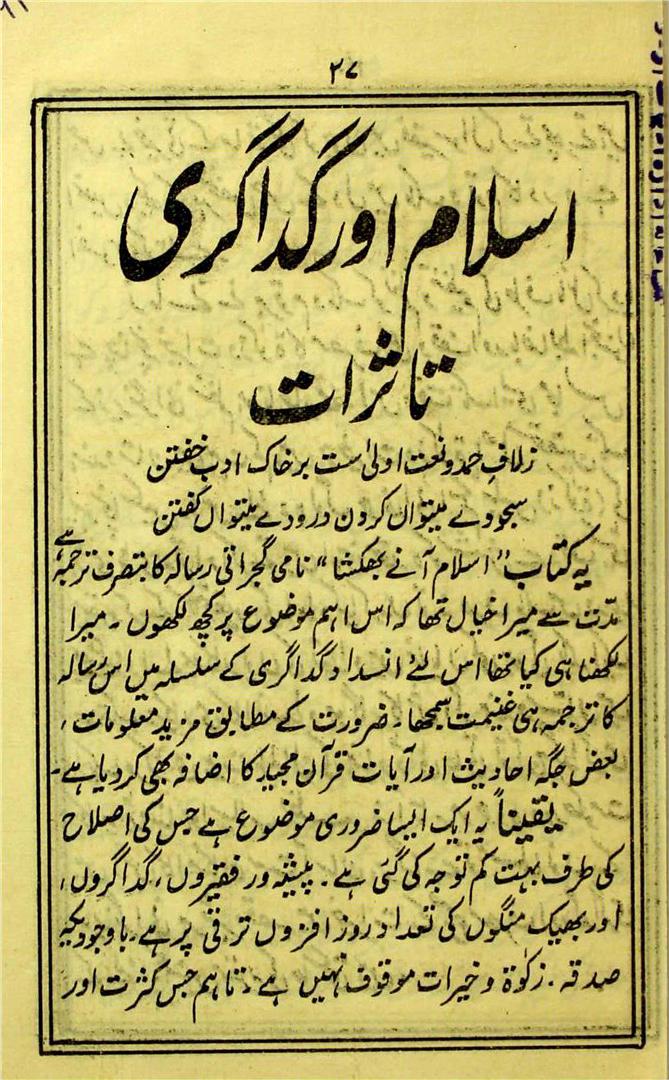 ۲۷
اسلام اور گداگری
تاثرات
زلافِ حمد و نعت اولیٰ است بر خاک ادب خفتن
سجودے میتوال کردن درودے میتوال گفتن
یہ کتاب "اسلام آنے بھکشا" نامی گجراتی رسالہ کا بتصرف ترجمہ ہے
مدّت سے میرا خیال تھا کہ اس اہم موضوع پر کچھ لکھوں ۔ میرا
لکھنا ہی کیا تھا اس لئے انسداد گداگری کے سلسلہ میں اس رسالہ
کا ترجمہ ہی غنیمت سمجھا۔ ضرورت کے مطابق مزید معلومات،
بعض جگہ احادیث اور آیات قرآن مجید کا اضافہ بھی کر دیا ہے۔
یقیناً یہ ایک ایسا ضروری موضوع ہے جس کی اصلاح
کی طرف بہت کم توجہ کی گئی ہے۔ پیشہ ور فقیروں، گداگروں،
اور بھیک منگوں کی تعداد روز افزوں ترقی پر ہے۔ باوجودیکہ
صدقہ۔ زکوٰۃ و خیرات موقوف نہیں ہے۔ تاہم جس کثرت اور